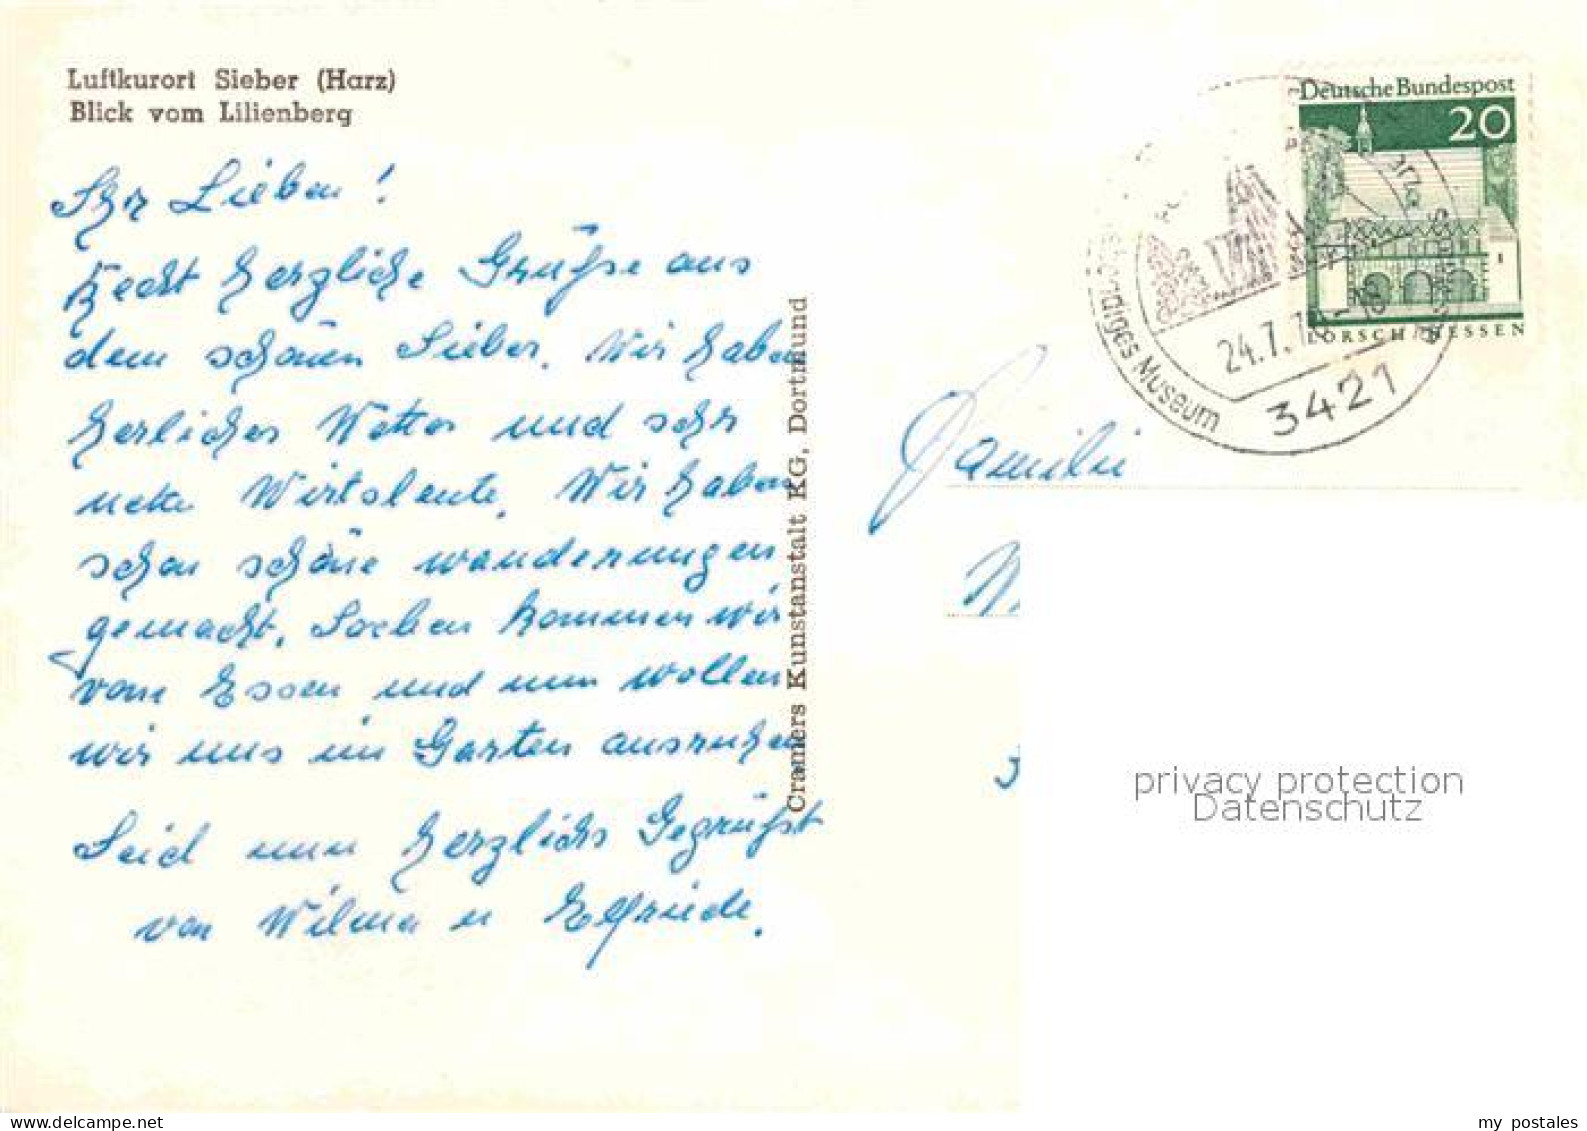 Luftkurort Sieber (Harz)
Blick vom Lilienberg
Ihr Lieben!
Recht herzliche Grüße aus
dem schönen Sieber. Wir haben
herliches Wetter und sehr
nette Wirtsleute. Wir haben
schon schöne wanderungen
gemacht. Soeben kommen wir
vom Essen und nun wollen
wir uns im Garten ausruhen
Seid nun herzlichs Gegrüßt
von Wilma u Elfriede.
Cramers Kunstanstalt KG, Dortmund
Deutsche Bundespost
20
LORSCH/HESSEN
Museum
24.7.7
3421
Familie
privacy protection
Datenschutz
my postales